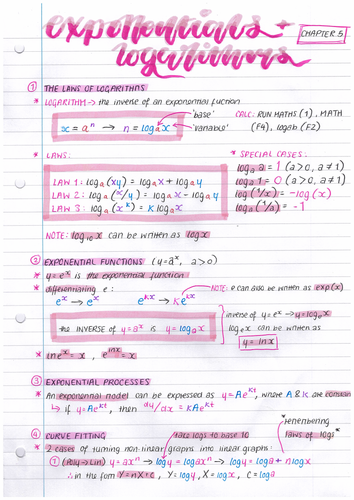 exponentials +
logarithms
CHAPTER 5
① THE LAWS OF LOGARITHMS
* LOGARITHM → the inverse of an exponential function
x = aⁿ → n = logₐx
'base'
'variable'
CALC: RUN MATHS (1), MATH
(F4), logab (F2)
* LAWS:
LAW 1: logₐ(xy) = logₐx + logₐy
LAW 2: logₐ(x/y) = logₐx - logₐy
LAW 3: logₐ(xᵏ) = K logₐx
* SPECIAL CASES:
logₐa = 1 (a>0, a≠1)
logₐ1 = 0 (a>0, a≠1)
log(1/x) = -log(x)
logₐ(1/a) = -1
NOTE: log₁₀x can be written as logx
② EXPONENTIAL FUNCTIONS (y=aˣ, a>0)
* y=eˣ is the exponential function
* differentiating e:
NOTE: e can also be written as exp(x)
eˣ → eˣ eᵏˣ → keᵏˣ
the INVERSE of y=aˣ is y=logₐx
inverse of y=eˣ → y=logₑx
logₑx can be written as
y = lnx
* lneˣ = x , eˡⁿˣ = x
③ EXPONENTIAL PROCESSES
* An exponential model can be expressed as y=Aeᵏᵗ, where A & K are constan
↳ if y=Aeᵏᵗ, then dy/dx = KAeᵏᵗ
④ CURVE FITTING
take logs to base 10
*remembering
laws of logs*
* 2 cases of turning non-linear graphs into linear graphs:
① (Poly → Lin) y=axⁿ → logy = logaxⁿ → logy = loga + nlogx
∴ in the form Y=nX+C, Y=logy, X=logx, C=loga